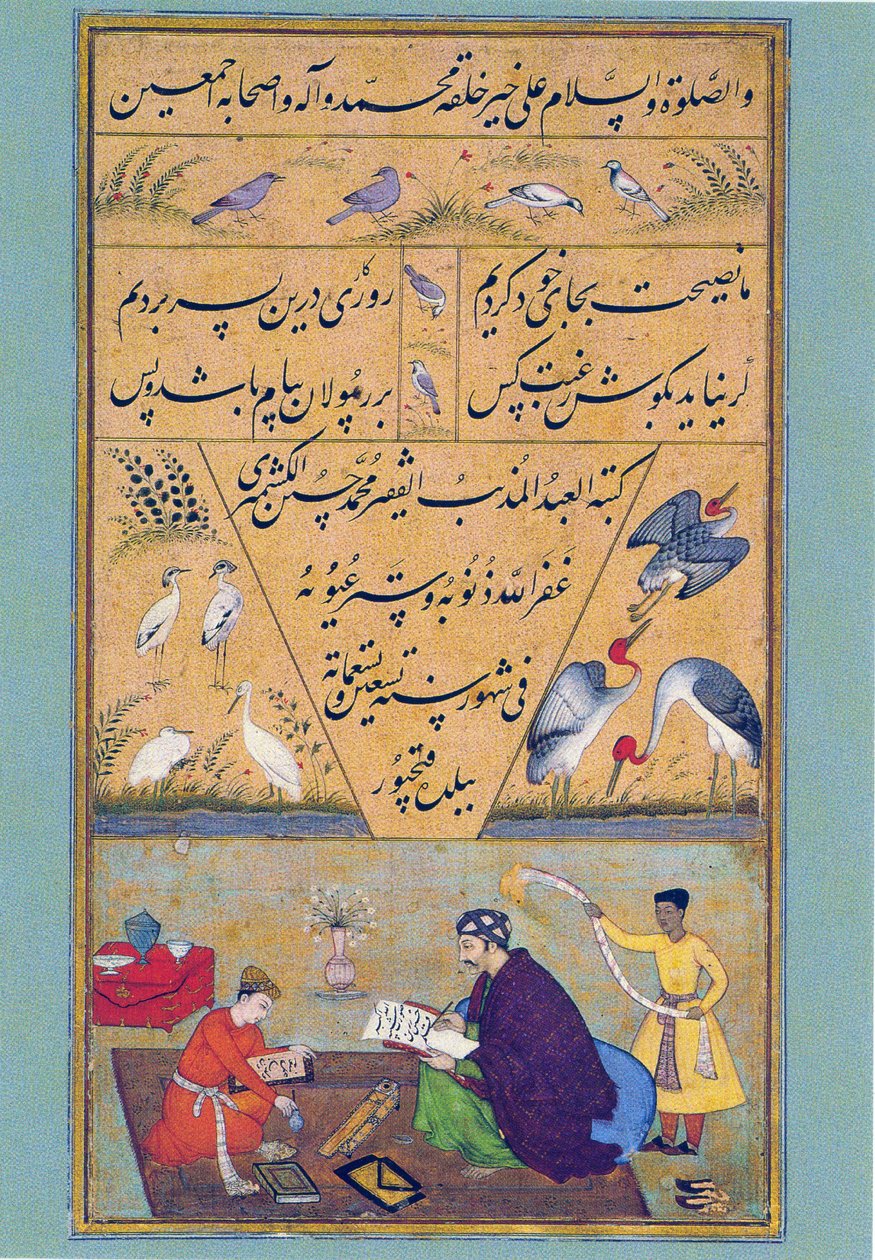 والصلوة والسلام علی خیر خلقه محمد وآله واصحابه اجمعین
ما نصیحت بجای خود کردیم
روزگاری درین بسر بردیم
گر نیاید بگوش رغبت کس
بر رسولان پیام باشد و بس
کتبه العبد المذنب الفقیر محمد حسین الکشمیری
غفر الله ذنوبه وستر عیوبه
فی شهور سنه تسعین وتسعمائة
ببلده فتحپور